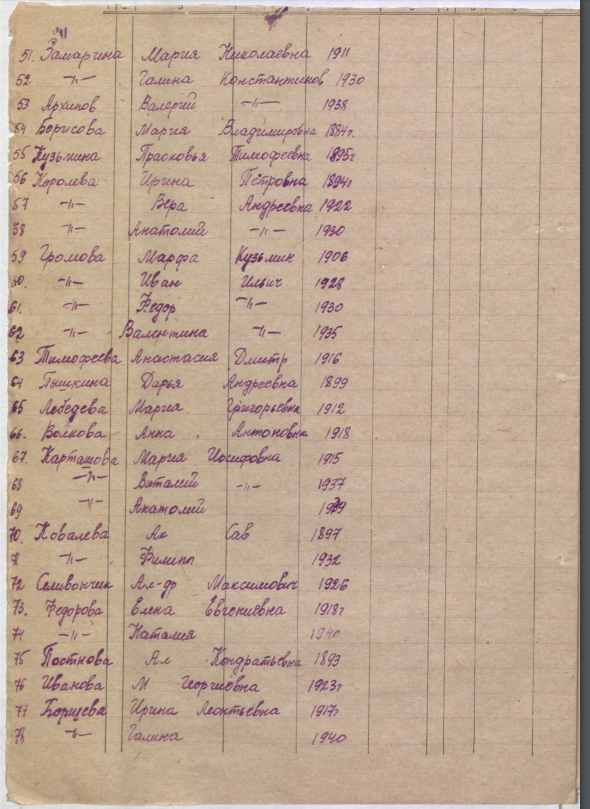 51. Замаргина Мария Николаевна 1911
52 -"- Галина Константинов 1930
53 Архипов Валерий -"- 1938
54 Борисова Мария Владимировна 1884г.
55 Кузьмина Прасковья Тимофеевна 1895г
56 Королева Ирина Петровна 1894г
57 -"- Вера Андреевна 1922
58 -"- Анатолий -"- 1930
59 Громова Марфа Кузьмин 1906
60. -"- Иван Ильич 1928
61. -"- Федор -"- 1930
62 -"- Валентина -"- 1935
63 Тимофеева Анастасия Дмитр 1916
64 Пышкина Дарья Андреевна 1899
65 Лебедева Мария Григорьевна 1912
66. Волкова Анна Антоновна 1918
67. Карташова Мария Иосифовна 1915
68 -"- Виталий -"- 1937
69 -"- Анатолий 1939
70. Ковалева Ак Сав 1897
71 -"- Филипп 1932
72 Селивончик Ал-др Максимович 1926
73. Федорова Елена Евгениевна 1918г
74 -"- Наталия 1940
75 Постнова Ал Кондратьевна 1893
76 Иванова М Георгиевна 1923г
77 Борщева Ирина Леонтьевна 1917г
78 -"- Галина 1940